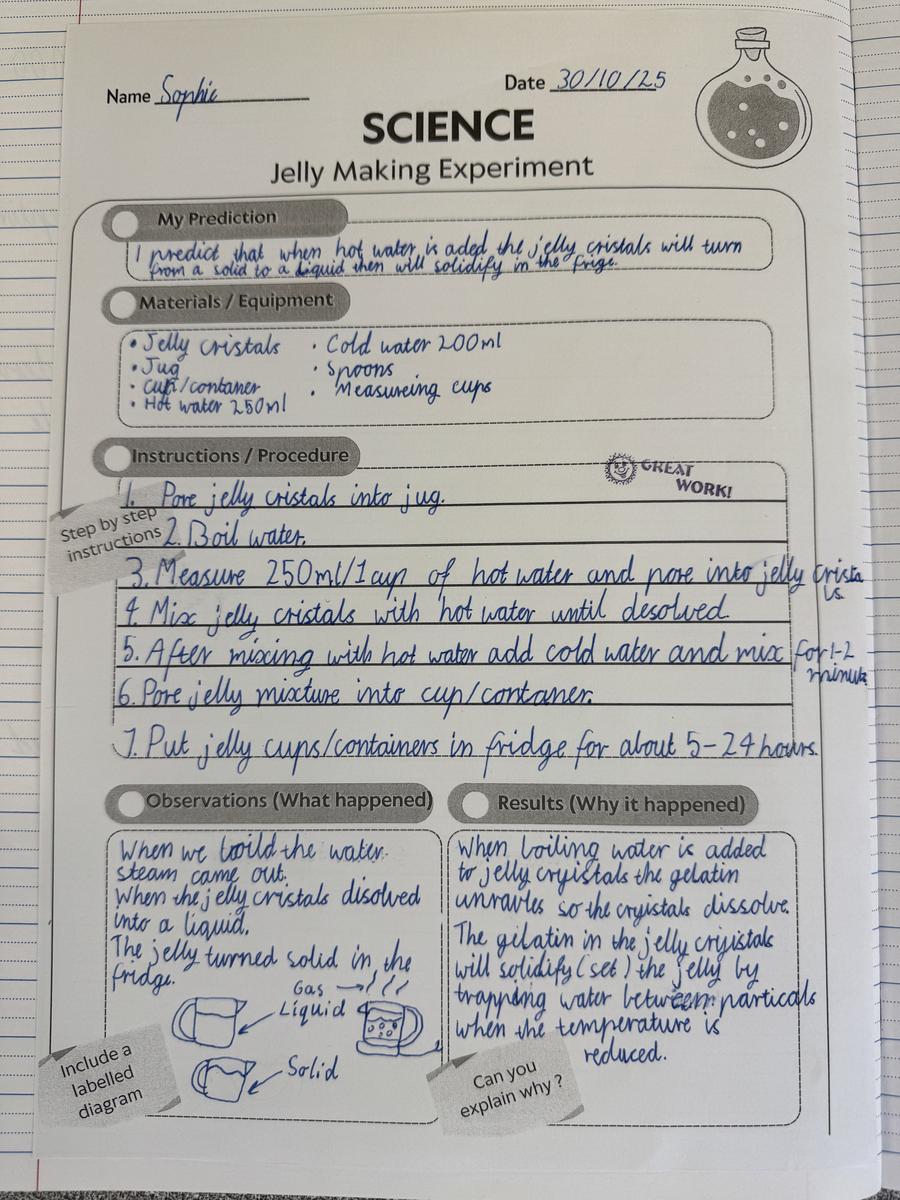 Name Sophie
Date 30/10/25
SCIENCE
Jelly Making Experiment
My Prediction
I predict that when hot water is aded the jelly cristals will turn
from a solid to a liquid then will solidify in the frige.
Materials / Equipment
• Jelly cristals
• Jug
• cup/contaner
• Hot water 250ml
• Cold water 200ml
• Spoons
• Measureing cups
Instructions / Procedure
GREAT
WORK!
Step by step
instructions
1. Pore jelly cristals into jug.
2. Boil water.
3. Measure 250ml/1cup of hot water and pore into jelly crista
ls.
4. Mix jelly cristals with hot water until desolved.
5. After mixing with hot water add cold water and mix for 1-2
minute
6. Pore jelly mixture into cup/contaner.
7. Put jelly cups/containers in fridge for about 5-24 hours.
Observations (What happened)
When we boild the water
steam came out.
When the jelly cristals disolved
into a liquid.
The jelly turned solid in the
fridge.
Gas
Liquid
Solid
Include a
labelled
diagram
Results (Why it happened)
When boiling water is added
to jelly cryistals the gelatin
unravles so the cryistals dissolve.
The gelatin in the jelly cryistals
will solidify (set) the jelly by
trapping water between particals
when the temperature is
reduced.
Can you
explain why?